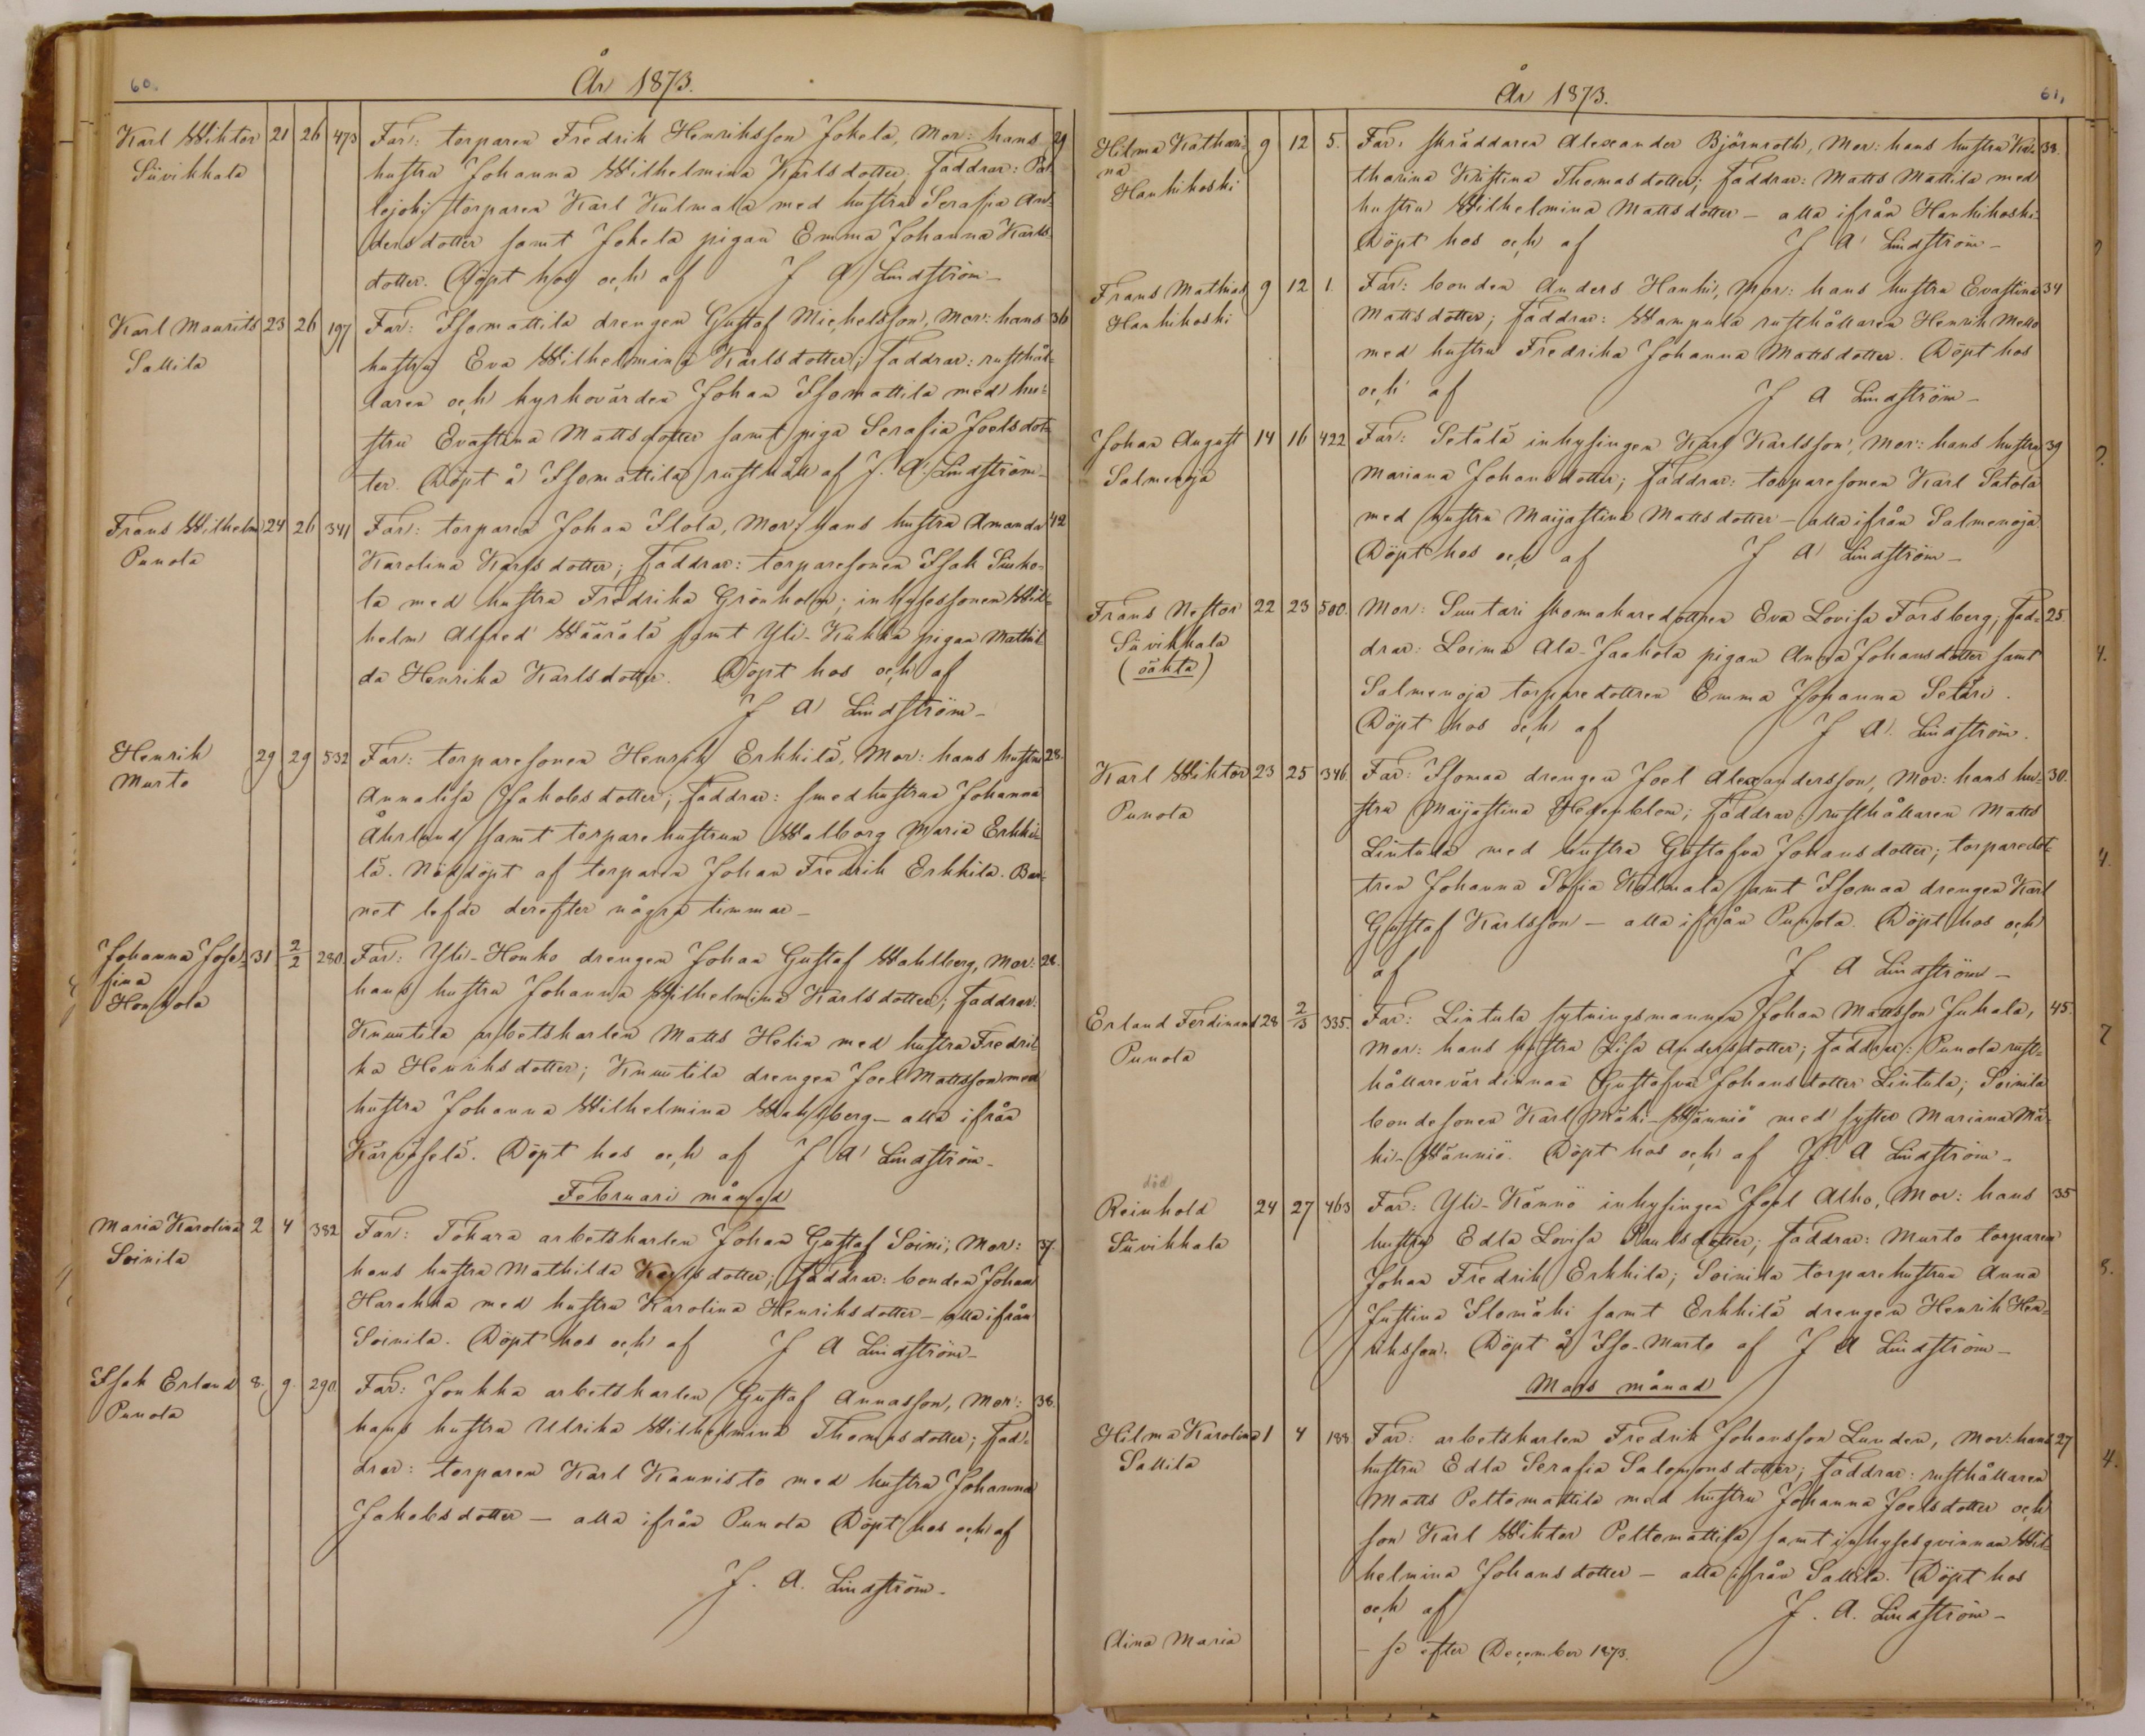 60.
År 1873.
Karl Wiktor 21 26 473 Far: torparen Fredrik Henriksson Jokela, Mor: hans 29
Siivikkala hustru Johanna Wilhelmina Karlsdotter. Faddrar: Pal
lojoki torparen Karl Kulmala med hustru Serafia An-
dersdotter samt Jokela pigan Emma Johanna Karls-
dotter. Döpt hos och af J A Lindström-
Karl Maurits 23 26 197 Far: Isomattila drengen Gustaf Michelsson, Mor: hans 36
Sallila hustru Eva Wilhelmina Karlsdotter; Faddrar: rusthål-
laren och kyrkovärden Johan Isomattila med hu-
stru Evastina Mattsdotter samt piga Serafia Joelsdot-
ter. Döpt å Isomattila rusthåll af J. A. Lindström-
Frans Wilhelm 24 26 341 Far: torparen Johan Ilola, Mor: hans hustru Amanda 42
Punola Karolina Karlsdotter; Faddrar: torparesonen Isak Sinko-
la med hustru Fredrika Grönholm; inhysessonen Wil-
helm Alfred Wäärälä samt Yli-Kukka pigan Mathil-
da Henrika Karlsdotter. Döpt hos och af
J A Lindström-
Henrik 29 29 532 Far: torparesonen Henrik Erkkilä, Mor: hans hustru 28.
Murto Annalisa Jakobsdotter; Faddrar: smedhustrun Johanna
Åkerlund samt torparehustrun Walborg Maria Erkki-
lä. Nöddöpt af torparen Johan Fredrik Erkkilä. Bar-
net lefde derefter några timmar-
Johanna Jose- 31 2/2 280. Far: Yli-Honko drengen Johan Gustaf Wahlberg, Mor: 28.
fina hans hustru Johanna Wilhelmina Karlsdotter; Faddrar:
Honkola Knuutila arbetskarlen Matts Helin med hustru Fredri-
ka Henriksdotter; Knuutila drengen Joel Mattsson med
hustru Johanna Wilhelmina Wahlberg- alla ifrån
Kärväselä. Döpt hos och af J A Lindström-
Februari månad
Maria Karolina 2 4 382 Far: Tokara arbetskarlen Johan Gustaf Soini; Mor: 37.
Soinila hans hustru Mathilda Karlsdotter; Faddrar: bonden Johan
Harakka med hustru Karolina Henriksdotter- alla ifrån
Soinila. Döpt hos och af J A Lindström-
Isak Erland 8. 9. 290. Far: Joukka arbetskarlen Gustaf Annasson, Mor: 38.
Punola hans hustru Ulrika Wilhelmina Thomasdotter; Fad-
drar: torparen Karl Kannisto med hustru Johanna
Jakobsdotter - alla ifrån Punola Döpt hos och af
J. A. Lindström-
År 1873.
61.
Hilma Kathari- 9 12 5. Far: skräddaren Alexander Björnroth, Mor: hans hustru Ka- 38.
na tharina Kristina Thomasdotter; Faddrar: Matts Mattila med
Hankikoski hustru Wilhelmina Mattsdotter - alla ifrån Hankikoski-
Döpt hos och af J A Lindström-
Frans Mathias 9 12 1. Far: bonden Anders Hanki, Mor: hans hustru Evastina 34
Hankikoski Mattsdotter; Faddrar: Wampula rusthållaren Henrik Mello
med hustru Fredrika Johanna Mattsdotter. Döpt hos
och af J A Lindström-
Johan August 14 16 422 Far: Setälä inhysingen Karl Karlsson, Mor: hans hustru 39
Salmenoja Mariana Johansdotter; Faddrar: torparesonen Karl Satola
med hustru Maijastina Mattsdotter - alla ifrån Salmenoja
Döpt hos och af J A Lindström-
Frans Nestor 22 23 500. Mor: Suutari skomakaredottren Eva Lovisa Forsberg; Fad- 25.
Siivikkala drar: Loima Ala-Jaakola pigan Anna Johansdotter samt
(oäkta) Salmenoja torparedottren Emma Johanna Setäri.
Döpt hos och af J A. Lindström.
Karl Wiktor 23 25 346. Far: Isomaa drengen Joel Alexandersson, Mor: hans hu- 30.
Punola stru Maijastina Hedenblom; Faddrar: rusthållaren Matts
Lintula med hustru Gustafva Johansdotter; torparedot-
tren Johanna Sofia Kulmala samt Isomaa drengen Karl
Gustaf Karlsson - alla ifrån Punola. Döpt hos och
af J A Lindström-
Erland Ferdinand 28 2/3 335. Far: Lintula sytningsmannen Johan Mattsson Juhala, 45.
Punola Mor: hans hustru Lisa Andersdotter; Faddrar: Punola rust-
hållarevärdinnan Gustafva Johansdotter Lintula; Soinila
bondesonen Karl Mäki-Männiö med syster Mariana Mä-
ki-Männiö. Döpt hos och af J. A Lindström-
död
Reinhold 24 27 463 Far: Yli-Kännö inhysingen Joel Alho, Mor: hans 35
Siivikkala hustru Edla Lovisa Paulsdotter; Faddrar: Murto torparen
Johan Fredrik Erkkilä; Soinila torparehustrun Anna
Justina Ilomäki samt Erkkilä drengen Henrik Hen-
riksson. Döpt å Iso-Murto af J A Lindström-
Mars månad
Hilma Karolina 1 4 188 Far: arbetskarlen Fredrik Johansson Lunden, Mor: hans 27
Sallila hustru Edla Serafia Salomonsdotter; Faddrar: rusthållaren
Matts Peltomattila med hustru Johanna Joelsdotter och
son Karl Wiktor Peltomattila samt inhysesqvinnan Wil-
helmina Johansdotter - alla ifrån Sallila. Döpt hos
och af J. A. Lindström-
Aina Maria - se efter December 1873.